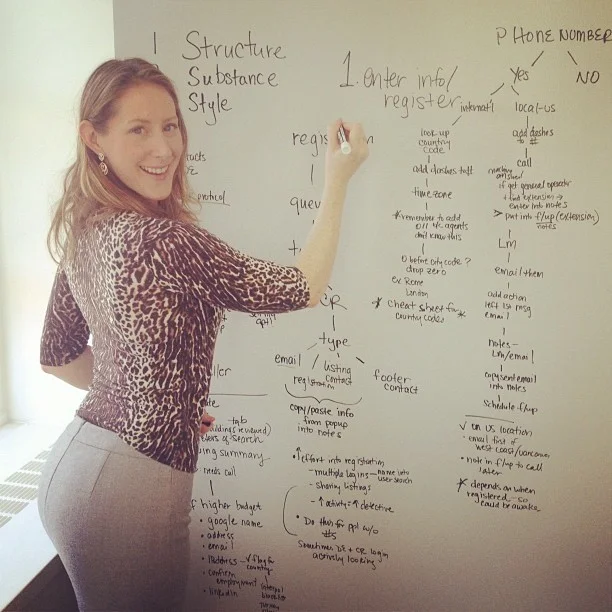 Structure
Substance
Style
protocol
1. enter info/
register
type
email
listing
contact
footer
contact
registration
copy/paste info
from popup
into notes
↑ effort into registration
- multiple logins - name into
user search
- sharing listings
- ↑ activity = ↑ detective
• Do this for ppl w/o
#s
Sometimes DE + CR login
actively looking
tab
summary
needs call
higher budget
• google name
• address
• email
• IP address - √ flag for
country
• confirm
employment
• linkedin
PHONE NUMBER
Yes
NO
internat'l
local-us
look up
country
code
add dashes to #
time zone
* remember to add
011 b/c agents
don't know this
0 before city code?
drop zero
ex. Rome
London
* cheat sheet for *
country codes
add dashes
to #
call
if get general operator
+ find extension →
enter into notes
> put into f/up (extension)
notes
Lm
email them
add action
left ist msg
email
notes -
Lm/email
copy sent email
into notes
schedule f/up
√ on US location
• email first if
west coast/vancouver
• note in f/up to call
later
* depends on when
registered - so
could be awake